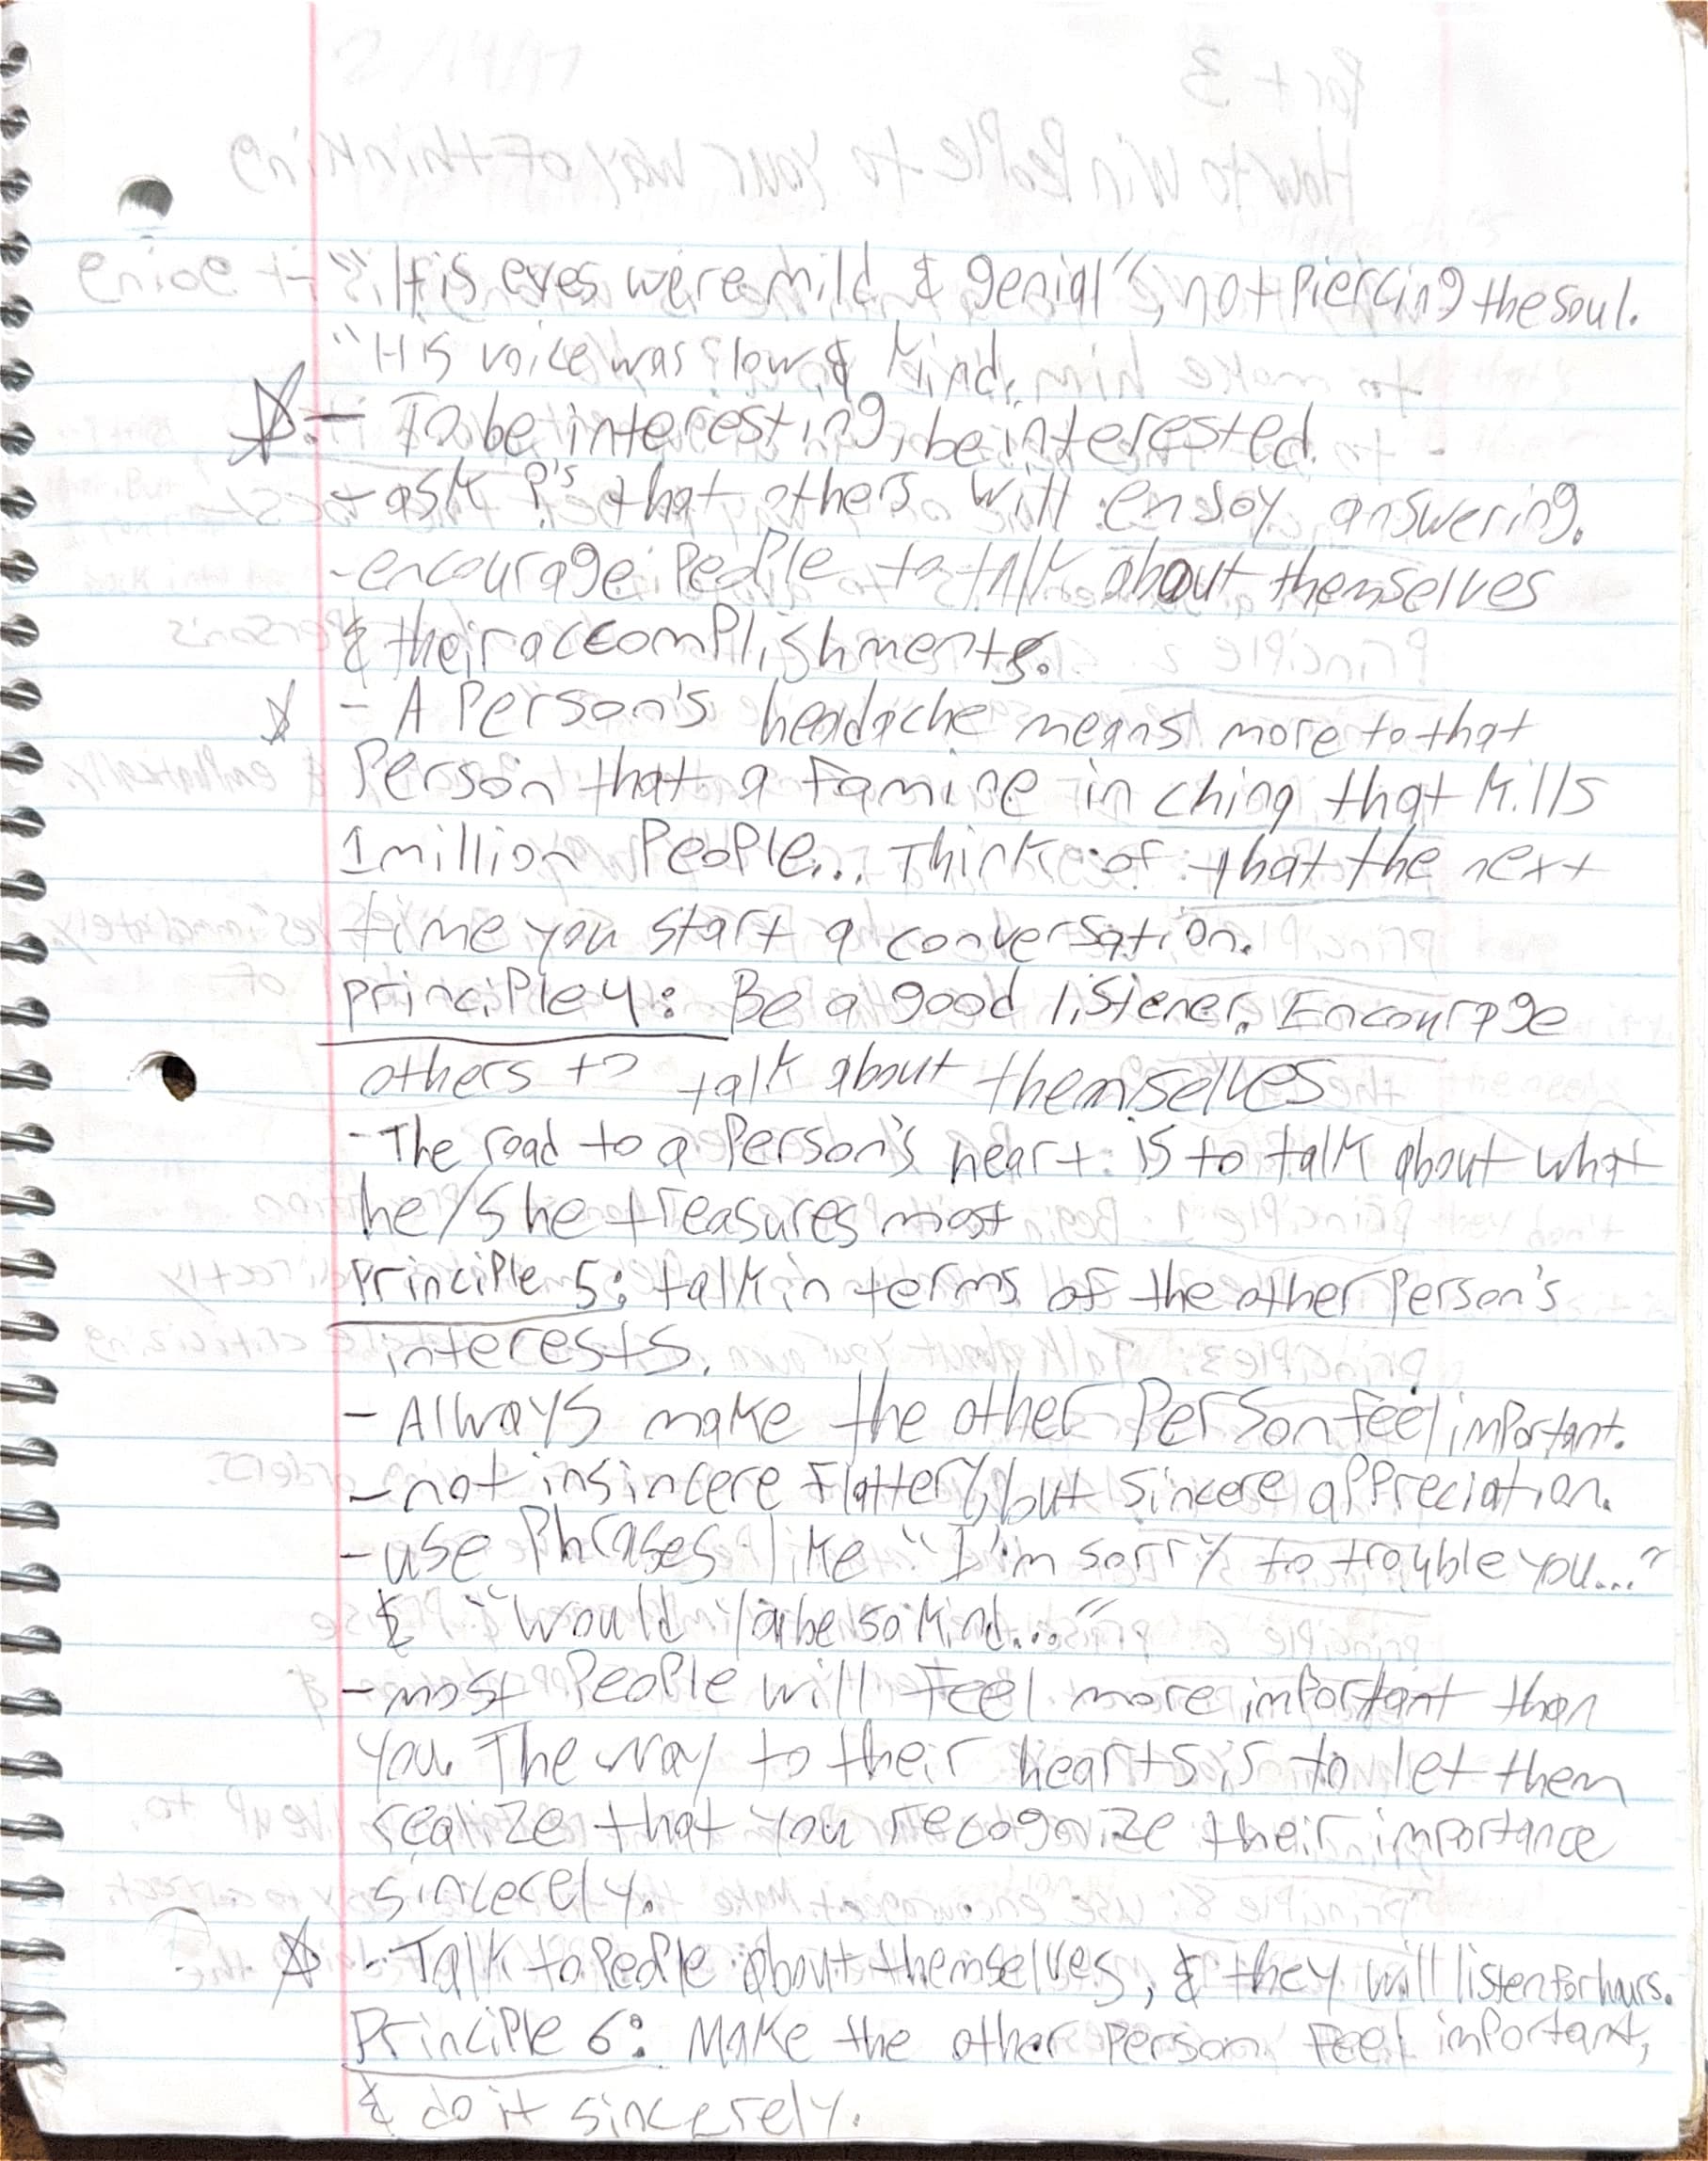 "His eyes were mild & genial", not piercing the soul.
"His voice was low & kind.
☆ - To be interesting, be interested.
- ask ?'s that others will enjoy answering.
- encourage people to talk about themselves
& their accomplishments.
☆ - A Person's headache means more to that
Person that a famine in china that kills
1 million People... Think of that the next
time you start a conversation.
Principle 4: Be a good listener. Encourage
others to talk about themselves
- The road to a Person's heart is to talk about what
he/she treasures most
Principle 5: talk in terms of the other Person's
interests.
- Always make the other Person feel important.
- not insincere flattery, but sincere appreciation.
- use Phrases like "I'm sorry to trouble you..."
& "Would be so kind..."
- most People will feel more important than
you. The way to their hearts is to let them
realize that you recognize their importance
sincerely.
☆ - Talk to People about themselves, & they will listen for hours.
Principle 6: Make the other Person feel important,
& do it sincerely.